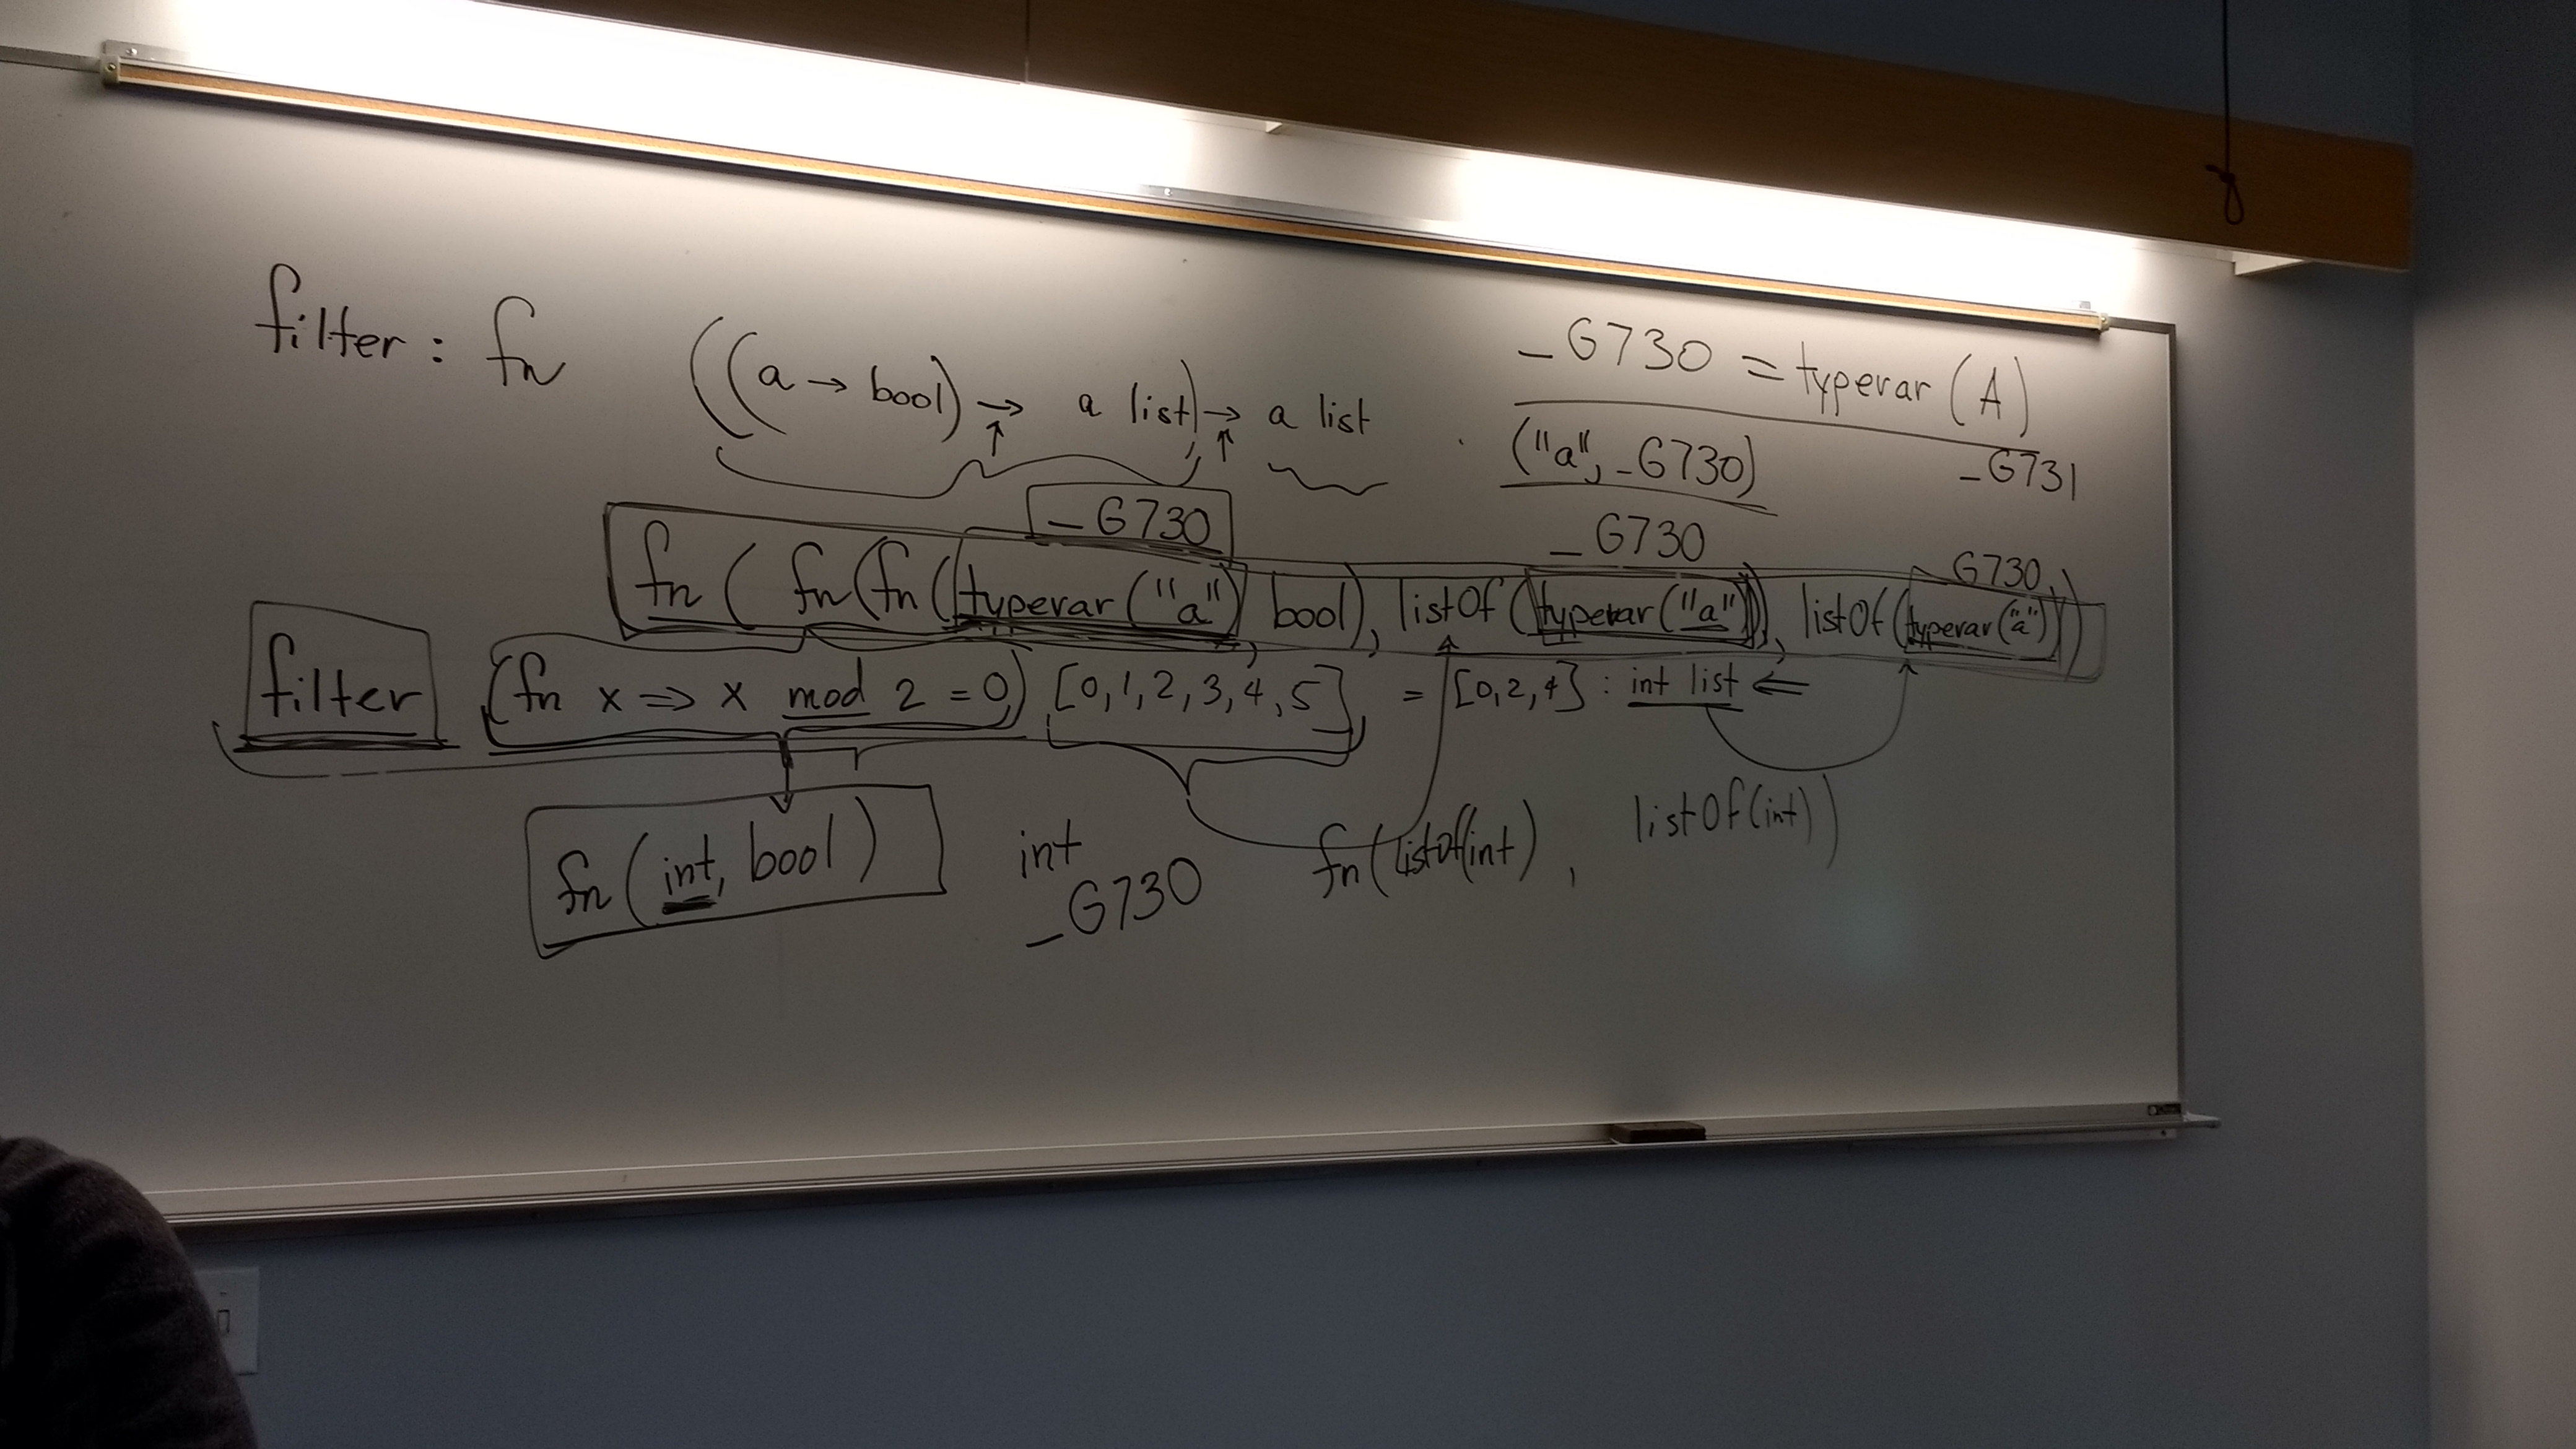 filter : fn ((a → bool) → a list) → a list
_G730 = typevar (A)
("a", _G730) _G731
_G730 _G730 G730
fn ( fn (fn (typevar ("a") bool), listOf (typevar ("a")), listOf (typevar ("a")))
filter (fn x => x mod 2 = 0) [0, 1, 2, 3, 4, 5] = [0, 2, 4] : int list ⇐
fn (int, bool) int fn (listOf(int), listOf(int))
_G730